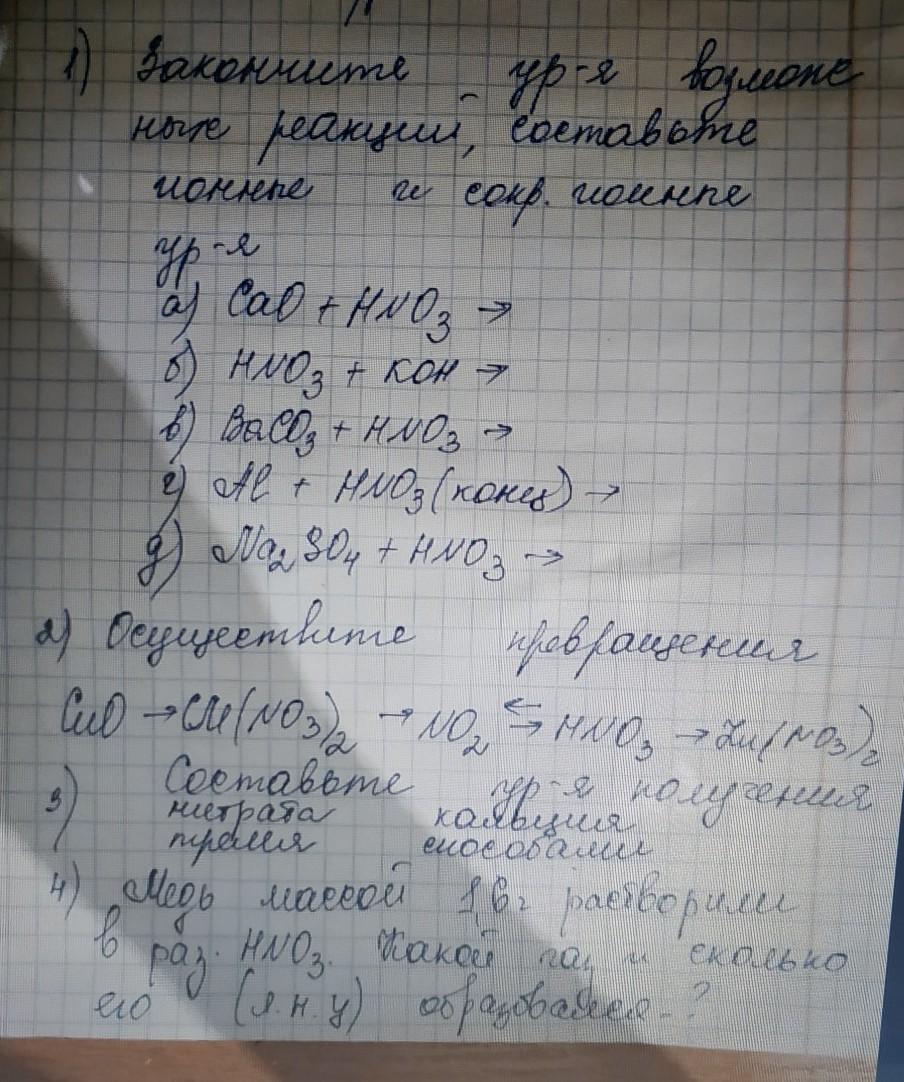 1) Закончите ур-я возмож
ные реакций, составьте
ионные и сокр. ионные
ур-я
а) CaO + HNO3 →
б) HNO3 + KOH →
в) BaCO3 + HNO3 →
г) Al + HNO3 (конц) →
д) Na2SO4 + HNO3 →
2) Осуществите превращения
CuO → Cu(NO3)2 → NO2 ⇆ HNO3 → Zn(NO3)2
3) Составьте ур-я получения
нитрата кальция
тремя способами
4) Медь массой 1,6г растворили
в раз. HNO3. Какой газ и сколько
его (л.н.у) образовалось-?